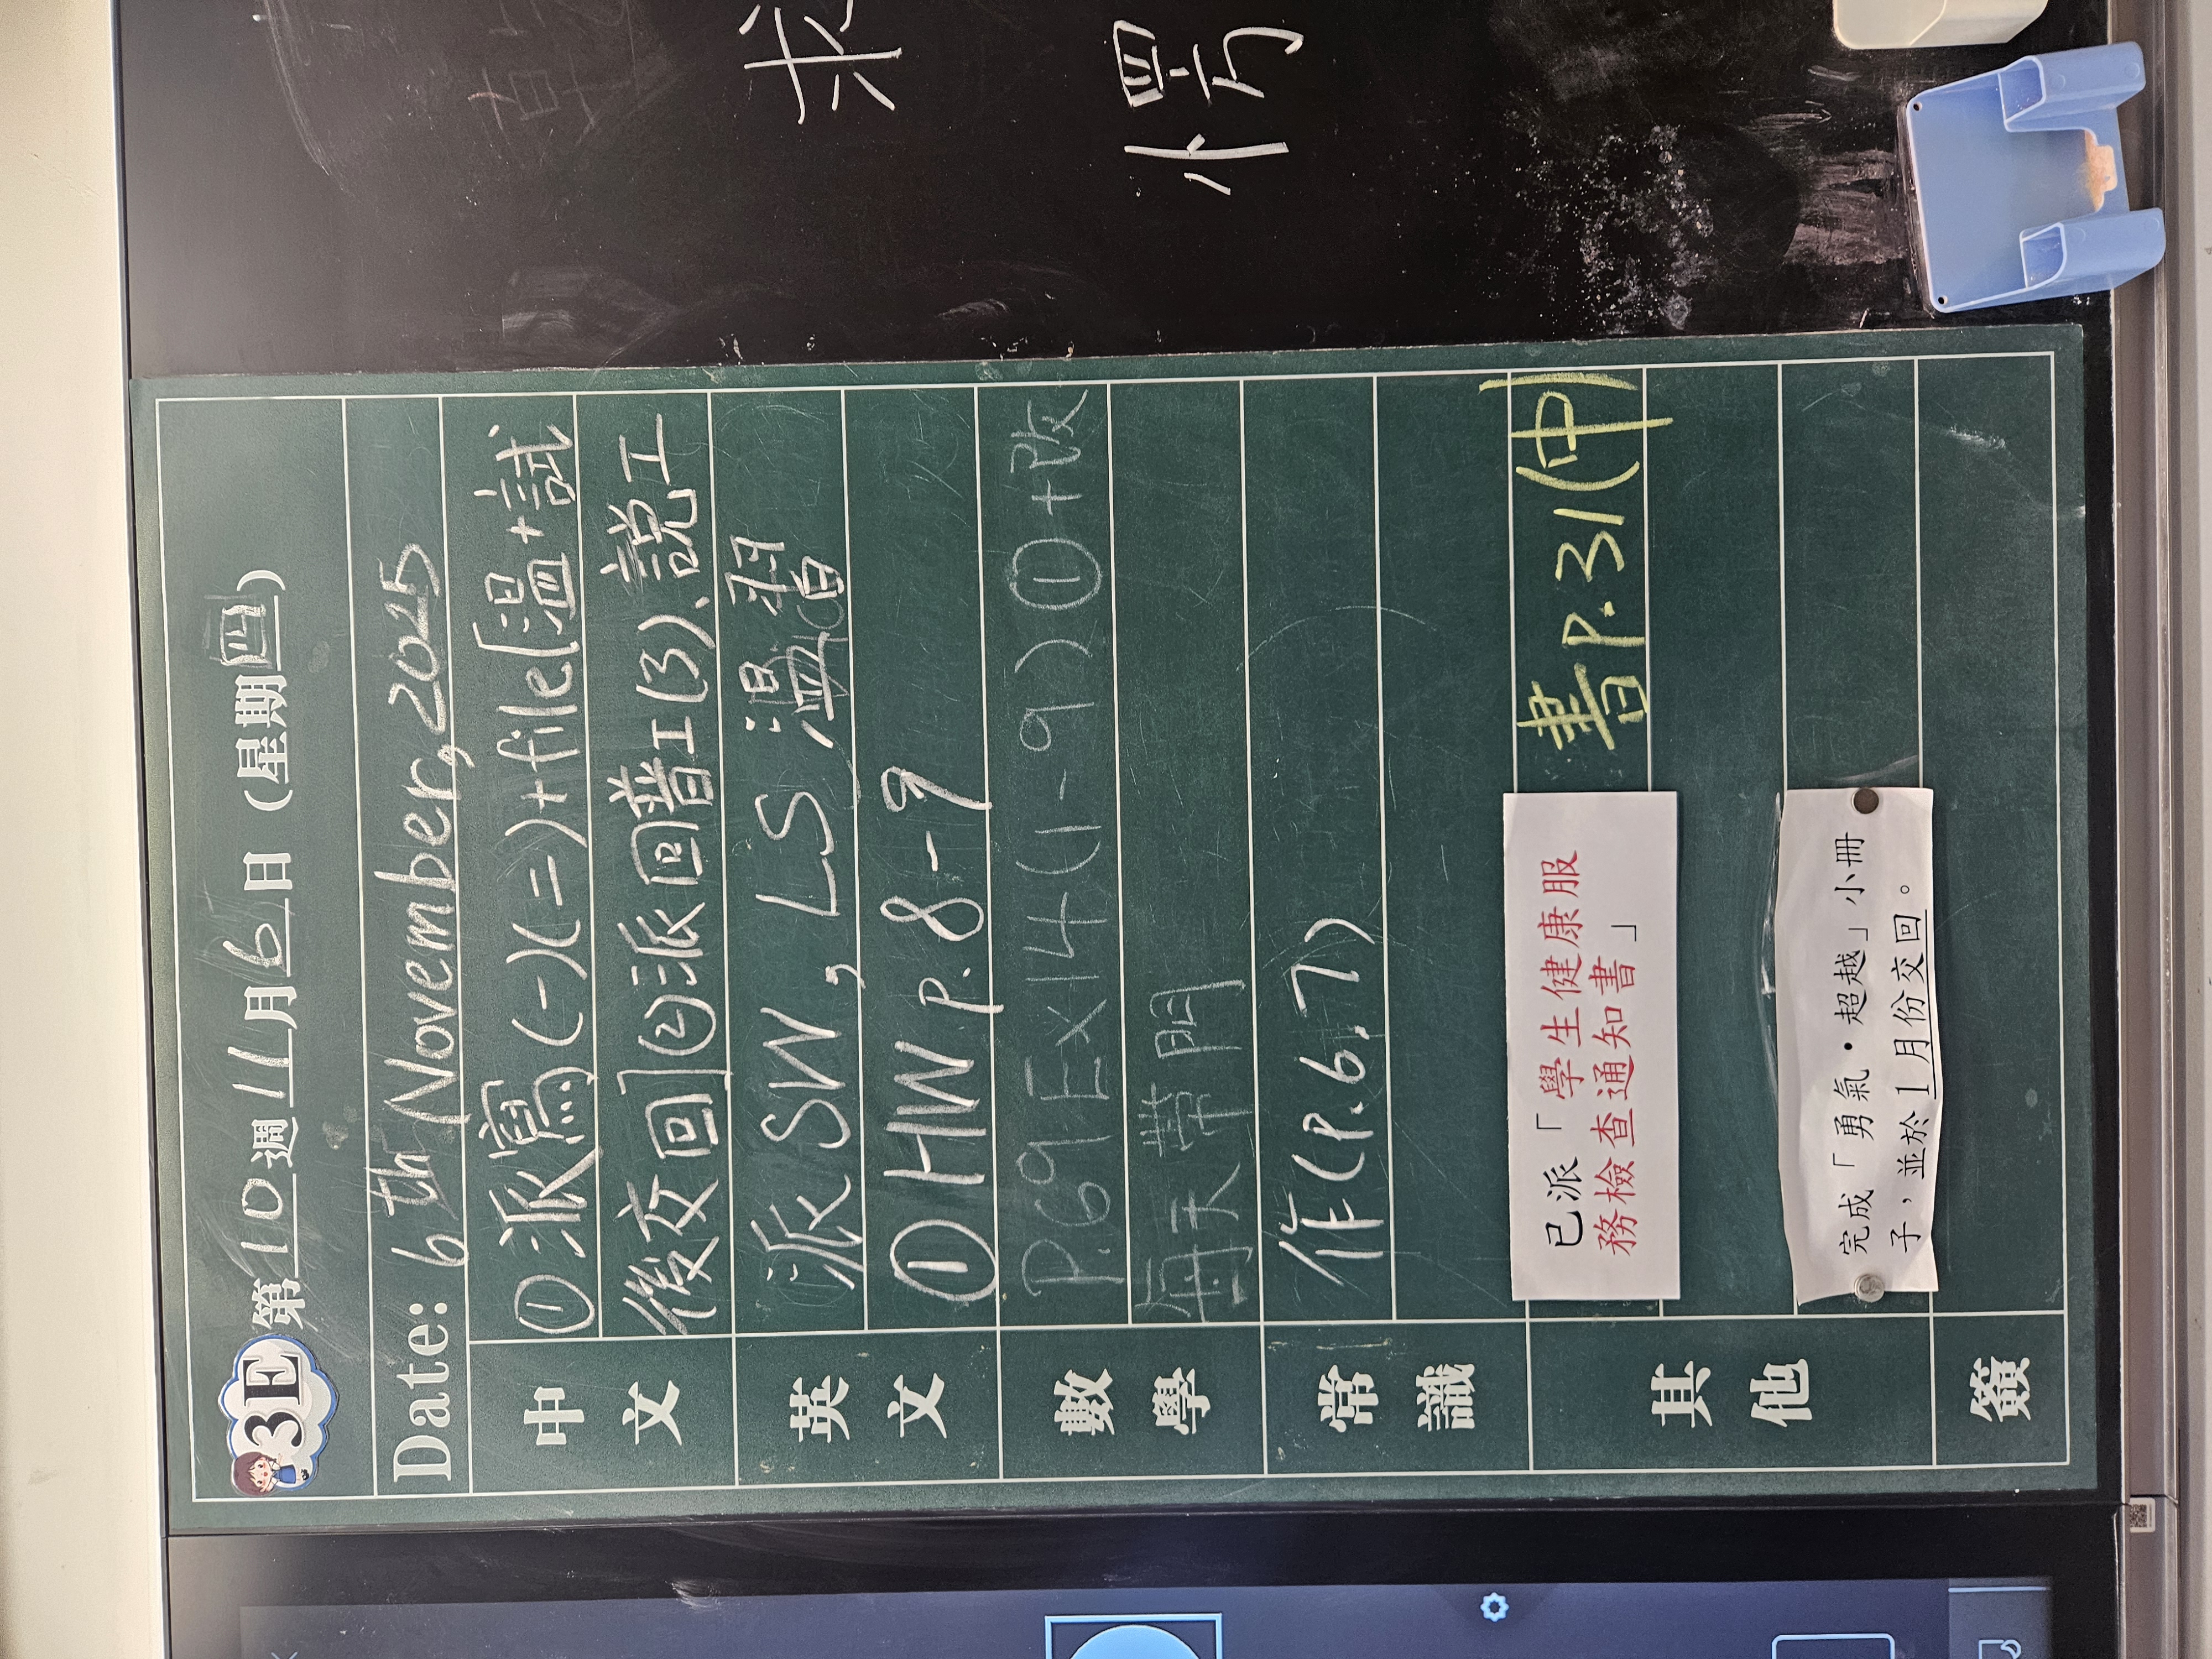 3E 第10週11月6日(星期四)
Date: 6th November, 2025
中文 ①派寫(一)(二)+file[溫+試
後交回]②派回普工(3)、說工
英文 派SW, LS 溫習
①HW p.8-9
數學 P.69Ex14(1-9)①+改
每天帶用
常識 作(P.6,7)
其他 已派「學生健康服
務檢查通知書」
書P.31(申)
完成「勇氣・超越」小冊
子，並於1月份交回。
簽